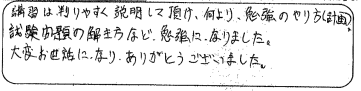 講習は判りやすく説明して頂け、何より、勉強のやり方(計画)
試験問題の解き方など、勉強になりました。
大変お世話になり、ありがとうございました。